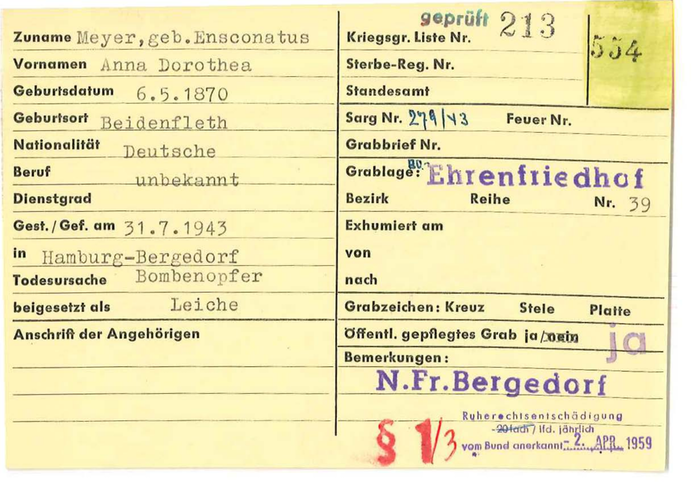 Zuname Meyer, geb. Ensconatus
Vornamen Anna Dorothea
Geburtsdatum 6.5.1870
Geburtsort Beidenfleth
Nationalität Deutsche
Beruf unbekannt
Dienstgrad
Gest./Gef. am 31.7.1943
in Hamburg-Bergedorf
Todesursache Bombenopfer
beigesetzt als Leiche
Anschrift der Angehörigen
geprüft 213
Kriegsgr. Liste Nr.
554
Sterbe-Reg. Nr.
Standesamt
Sarg Nr. 279/43 Feuer Nr.
Grabbrief Nr.
Grablage: Ehrenfriedhof
Bezirk Reihe Nr. 39
Exhumiert am
von
nach
Grabzeichen: Kreuz Stele Platte
Öffentl. gepflegtes Grab ja/nein ja
Bemerkungen:
N.Fr.Bergedorf
Ruherechtsentschädigung
20fach / lfd. jährlich
§ 1/3 vom Bund anerkannt: -2. APR. 1959